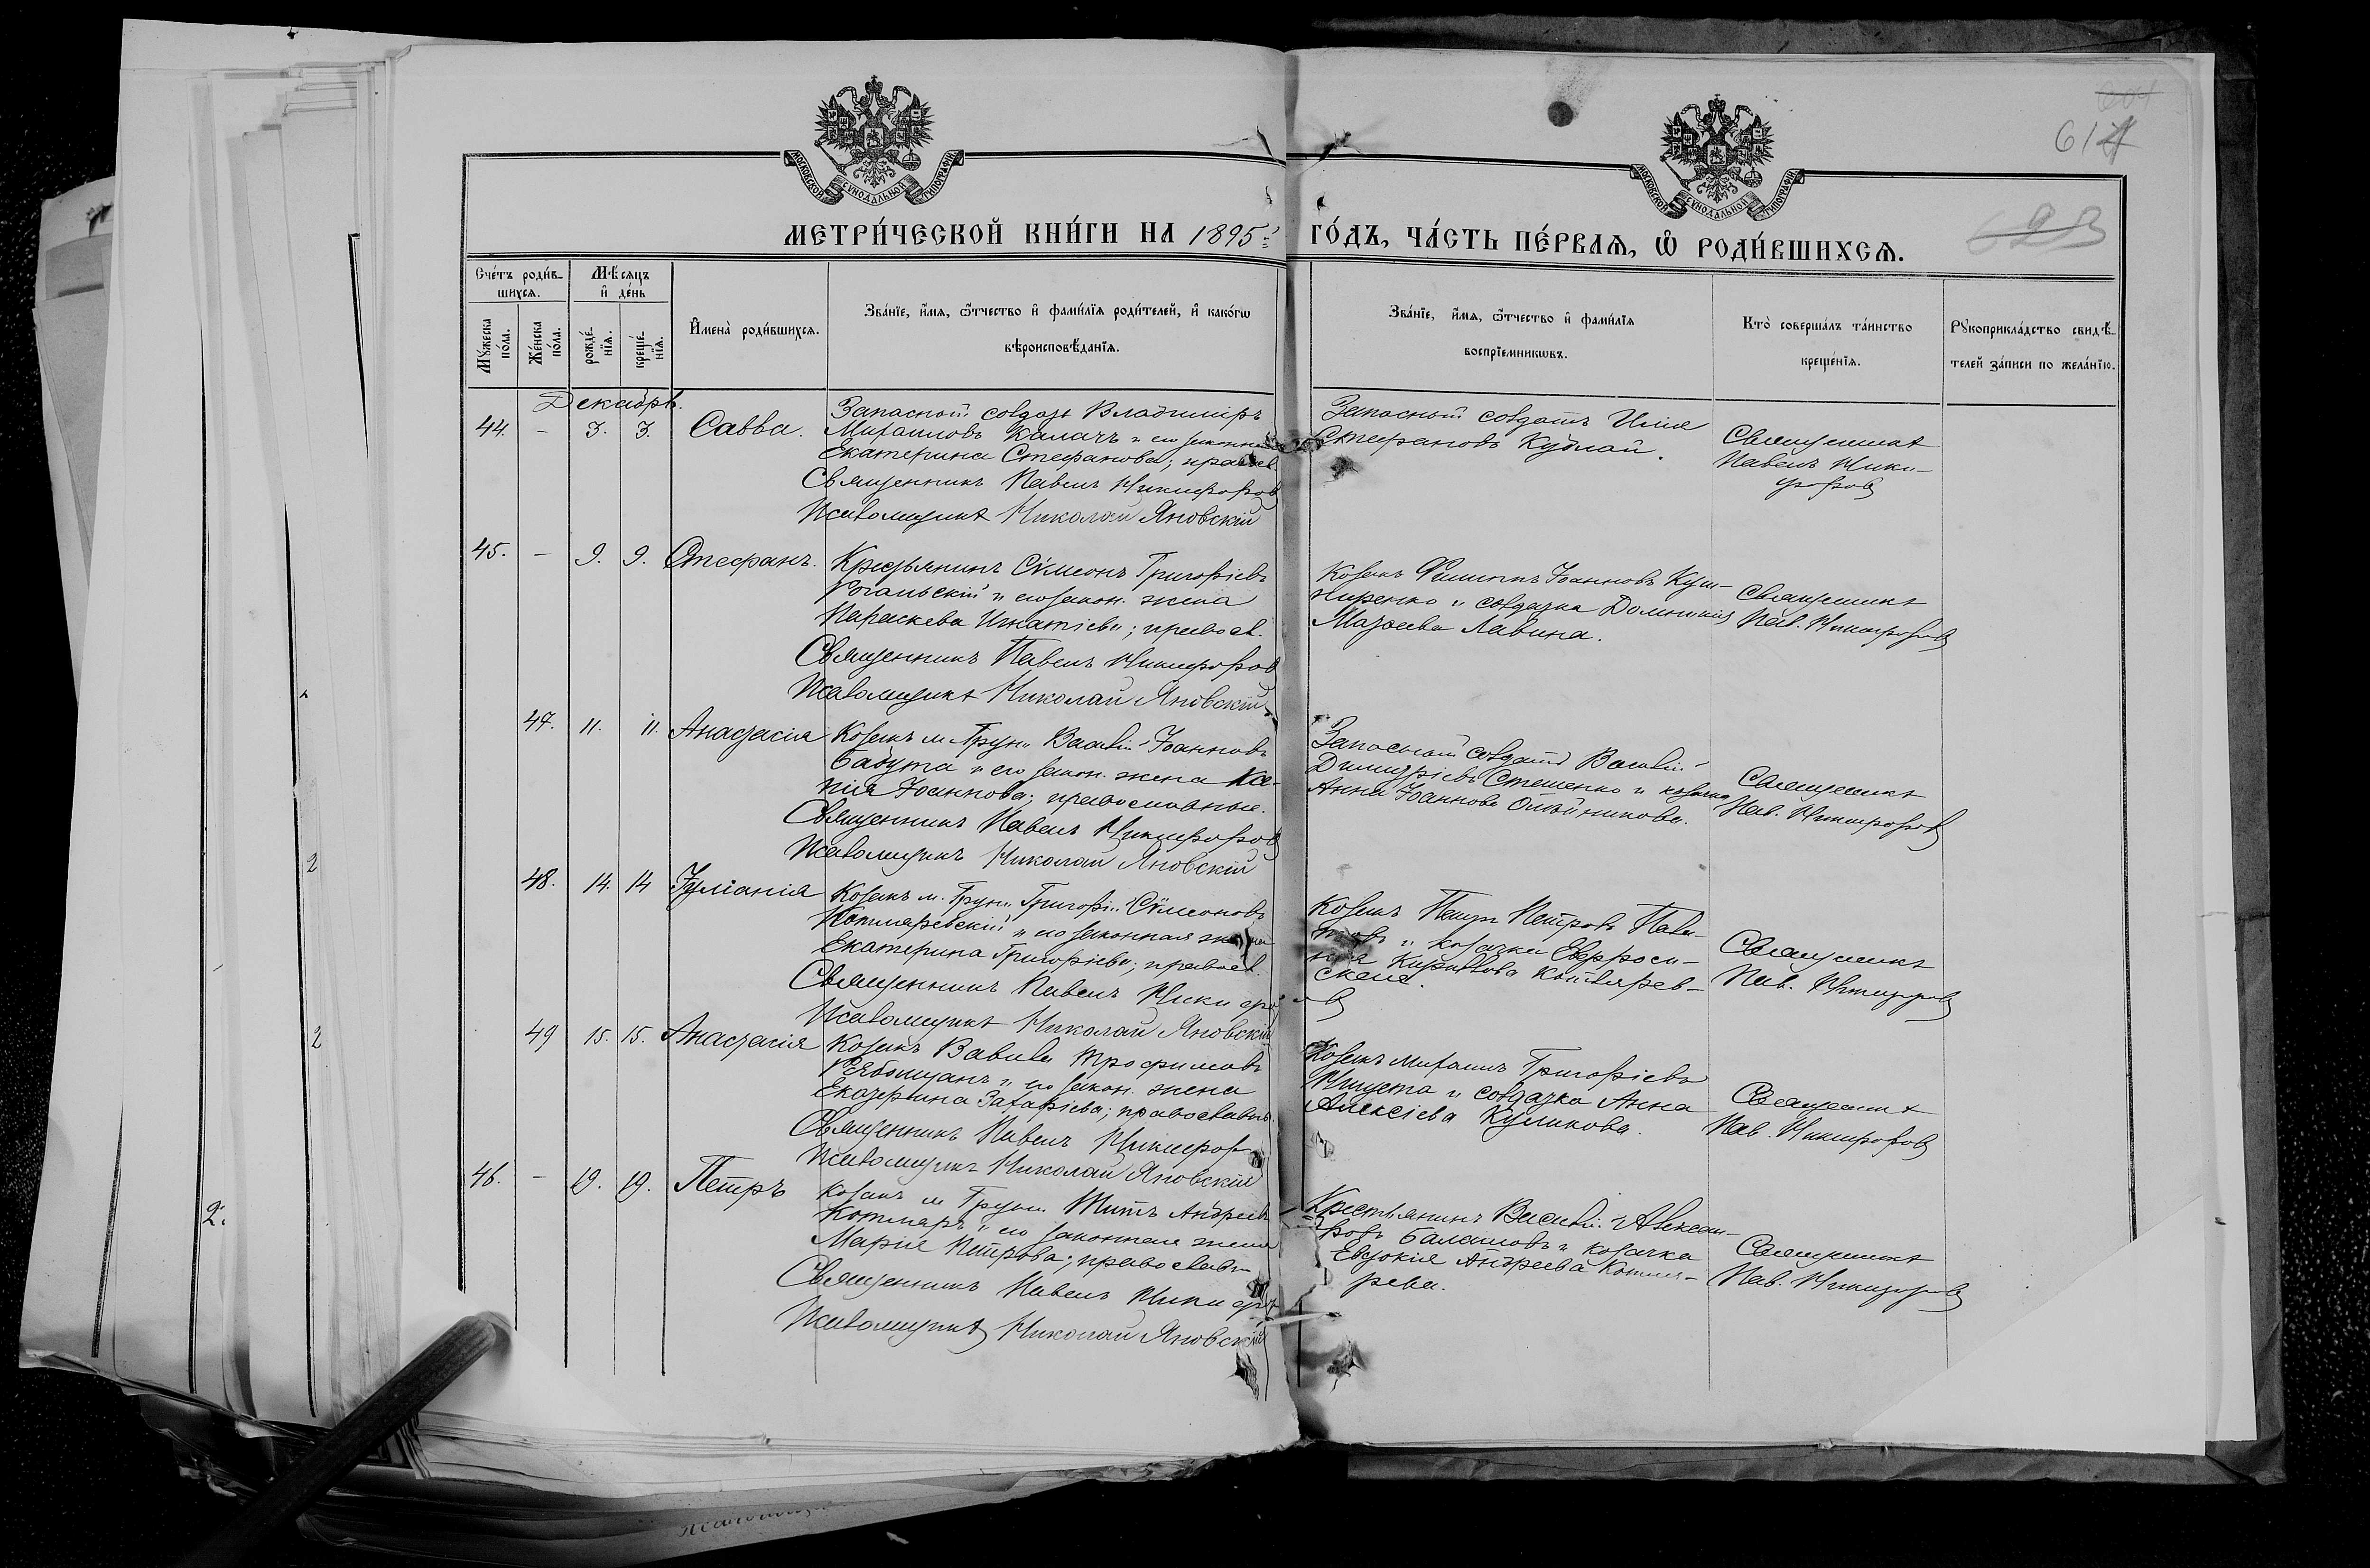 МОСКОВСКОЙ СѴНОДАЛЬНОЙ ТИПОГРАФІИ
МОСКОВСКОЙ СѴНОДАЛЬНОЙ ТИПОГРАФІИ
614
623
МЕТРИ́ЧЕСКОЙ КНИ́ГИ НА 1895 ГО́ДЪ, ЧА́СТЬ ПЕ́РВАѦ, Ѡ҆ РОДИ́ВШИХСѦ.
Сче́тъ роди́в-
шихсѧ.
Мѣ́сѧцъ
и҆ де́нь
Мꙋ́жеска
по́ла.
Же́нска
по́ла.
рожде́-
нїѧ.
креще́-
нїѧ.
И҆мена̀ роди́вшихсѧ.
Зва́нїе, и҆́мѧ, ѻ҆́тчество и҆ фами́лїѧ роди́телей, и҆ како́гѡ
вѣроисповѣ́данїѧ.
Зва́нїе, и҆́мѧ, ѻ҆́тчество и҆ фами́лїѧ
воспрїе́мникѡвъ.
Кто̀ соверша́лъ та́инство
креще́нїѧ.
Рꙋкоприкла́дство свидѣ́-
телей за́писи по жела́нїю.
Декабрь.
44. - 3. 3. Савва.
Запасной солдатъ Владиміръ
Михаиловъ Калачъ и его законная
Екатерина Стефанова; правосл.
Священникъ Павелъ Никифоровъ
Псаломщикъ Николай Яновскій
Запасный солдатъ Илія
Стефановъ Кублай.
Священникъ
Павелъ Ники-
форовъ
45. - 9. 9. Стефанъ.
Крестьянинъ Сѵмеонъ Григоріевъ
Рогальскій и его закон. жена
Параскева Игнатіева; правосл.
Священникъ Павелъ Никифоровъ
Псаломщикъ Николай Яновскій
Козакъ Филиппъ Іоанновъ Куш-
ниренко и солдатка Домникія
Мазоева Лавина.
Священникъ
Пав. Никифоровъ
47. 11. 11. Анастасія
Козакъ м. Груни Василій Іоанновъ
Бабута и его закон. жена Ксе-
нія Іоаннова; православные.
Священникъ Павелъ Никифоровъ
Псаломщикъ Николай Яновскій
Запасный солдатъ Василій
Димитріевъ Стешенко и козачка
Анна Іоаннова Олейникова.
Священникъ
Пав. Никифоровъ
48. 14. 14 Іуліанія
Козакъ м. Груни Григорій Сѵмеоновъ
Котляревскій и его законная жена
Екатерина Григоріева; правосл.
Священникъ Павелъ Никифоровъ
Псаломщикъ Николай Яновскій
Козакъ Петръ Петровъ
и козачка Евфроси-
нія Кириллова Котлярев-
ская.
Священникъ
Пав. Никифоровъ
49 15. 15. Анастасія
Козакъ Вавила Трофимовъ
Рябощанъ и его закон. жена
Екатерина Захаріева; православн.
Священникъ Павелъ Никифоровъ
Псаломщикъ Николай Яновскій
Козакъ Михаилъ Григоріевъ
Нищета и солдатка Анна
Алексіева Куликова.
Священникъ
Пав. Никифоровъ
46. - 19. 19. Петръ
Козакъ м. Груни Титъ Андреевъ
Котляръ и его законная жена
Марія Петрова; православн.
Священникъ Павелъ Никифоровъ
Псаломщикъ Николай Яновскій
Крестьянинъ Василій Алексан-
ровъ Балашовъ и козачка
Евдокія Андреева Котля-
рева.
Священникъ
Пав. Никифоровъ
2
2
2.